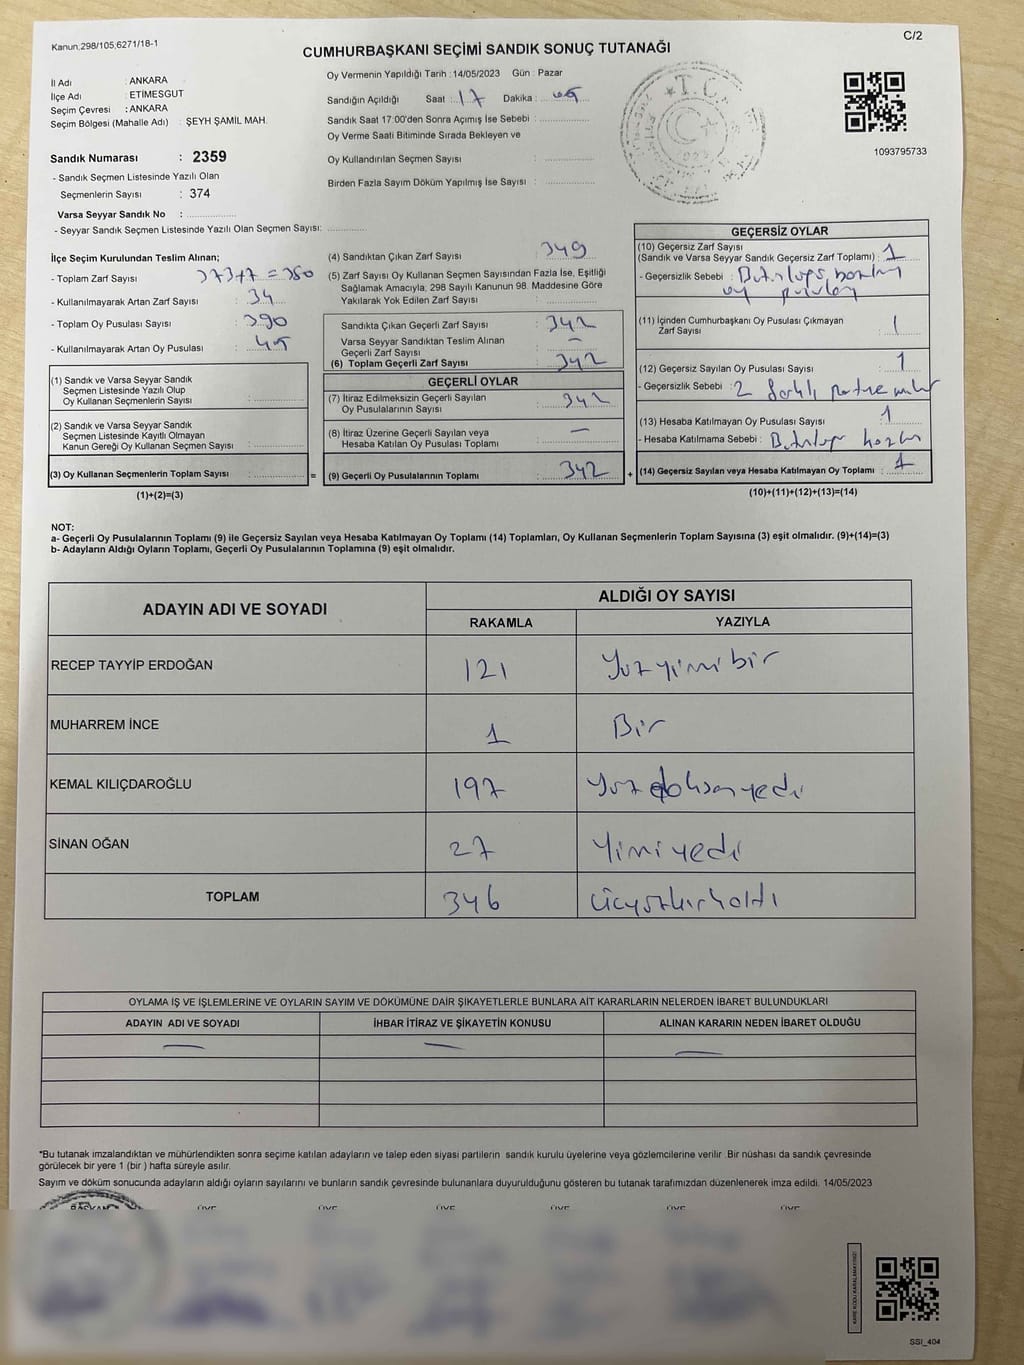 Kanun,298/105,6271/18-1
C/2
CUMHURBAŞKANI SEÇİMİ SANDIK SONUÇ TUTANAĞI
İl Adı : ANKARA
İlçe Adı : ETİMESGUT
Seçim Çevresi : ANKARA
Seçim Bölgesi (Mahalle Adı) : ŞEYH ŞAMİL MAH.
Sandık Numarası : 2359
- Sandık Seçmen Listesinde Yazılı Olan
Seçmenlerin Sayısı : 374
Varsa Seyyar Sandık No :
- Seyyar Sandık Seçmen Listesinde Yazılı Olan Seçmen Sayısı:
Oy Vermenin Yapıldığı Tarih : 14/05/2023 Gün : Pazar
Sandığın Açıldığı Saat : 17 Dakika :
Sandık Saat 17:00'den Sonra Açımış İse Sebebi :
Oy Verme Saati Bitiminde Sırada Bekleyen ve
Oy Kullandırılan Seçmen Sayısı :
Birden Fazla Sayım Döküm Yapılmış İse Sayısı :
T.C.
1093795733
İlçe Seçim Kurulundan Teslim Alınan;
- Toplam Zarf Sayısı : 373+7 = 380
- Kullanılmayarak Artan Zarf Sayısı : 34
- Toplam Oy Pusulası Sayısı : 390
- Kullanılmayarak Artan Oy Pusulası : 45
(1) Sandık ve Varsa Seyyar Sandık
Seçmen Listesinde Yazılı Olup
Oy Kullanan Seçmenlerin Sayısı :
(2) Sandık ve Varsa Seyyar Sandık
Seçmen Listesinde Kayıtlı Olmayan
Kanun Gereği Oy Kullanan Seçmen Sayısı :
(3) Oy Kullanan Seçmenlerin Toplam Sayısı :
(1)+(2)=(3)
(4) Sandıktan Çıkan Zarf Sayısı : 349
(5) Zarf Sayısı Oy Kullanan Seçmen Sayısından Fazla İse, Eşitliği
Sağlamak Amacıyla, 298 Sayılı Kanunun 98. Maddesine Göre
Yakılarak Yok Edilen Zarf Sayısı :
Sandıkta Çıkan Geçerli Zarf Sayısı : 342
Varsa Seyyar Sandıktan Teslim Alınan
Geçerli Zarf Sayısı : —
(6) Toplam Geçerli Zarf Sayısı : 342
GEÇERLİ OYLAR
(7) İtiraz Edilmeksizin Geçerli Sayılan
Oy Pusulalarının Sayısı : 342
(8) İtiraz Üzerine Geçerli Sayılan veya
Hesaba Katılan Oy Pusulası Toplamı : —
= (9) Geçerli Oy Pusulalarının Toplamı : 342
GEÇERSİZ OYLAR
(10) Geçersiz Zarf Sayısı
(Sandık ve Varsa Seyyar Sandık Geçersiz Zarf Toplamı) : 1
- Geçersizlik Sebebi :
oy
(11) İçinden Cumhurbaşkanı Oy Pusulası Çıkmayan
Zarf Sayısı : 1
(12) Geçersiz Sayılan Oy Pusulası Sayısı : 1
- Geçersizlik Sebebi : 2 farklı
(13) Hesaba Katılmayan Oy Pusulası Sayısı : 1
- Hesaba Katılmama Sebebi :
+ (14) Geçersiz Sayılan veya Hesaba Katılmayan Oy Toplamı : 1
(10)+(11)+(12)+(13)=(14)
NOT:
a- Geçerli Oy Pusulalarının Toplamı (9) ile Geçersiz Sayılan veya Hesaba Katılmayan Oy Toplamı (14) Toplamları, Oy Kullanan Seçmenlerin Toplam Sayısına (3) eşit olmalıdır. (9)+(14)=(3)
b- Adayların Aldığı Oyların Toplamı, Geçerli Oy Pusulalarının Toplamına (9) eşit olmalıdır.
ADAYIN ADI VE SOYADI
ALDIĞI OY SAYISI
RAKAMLA YAZIYLA
RECEP TAYYİP ERDOĞAN 121 Yüzyimibir
MUHARREM İNCE 1 Bir
KEMAL KILIÇDAROĞLU 197 Yüzdoksanyedi
SİNAN OĞAN 27 Yimiyedi
TOPLAM 346 üçyüzkırkaltı
OYLAMA İŞ VE İŞLEMLERİNE VE OYLARIN SAYIM VE DÖKÜMÜNE DAİR ŞİKAYETLERLE BUNLARA AİT KARARLARIN NELERDEN İBARET BULUNDUKLARI
ADAYIN ADI VE SOYADI İHBAR İTİRAZ VE ŞİKAYETİN KONUSU ALINAN KARARIN NEDEN İBARET OLDUĞU
— — —
*Bu tutanak imzalandıktan ve mühürlendikten sonra seçime katılan adayların ve talep eden siyasi partilerin sandık kurulu üyelerine veya gözlemcilerine verilir .Bir nüshası da sandık çevresinde
görülecek bir yere 1 (bir ) hafta süreyle asılır.
Sayım ve döküm sonucunda adayların aldığı oyların sayılarını ve bunların sandık çevresinde bulunanlara duyurulduğunu gösteren bu tutanak tarafımızdan düzenlenerek imza edildi. 14/05/2023
BAŞKAN ÜYE ÜYE ÜYE ÜYE ÜYE ÜYE
SSİ_404